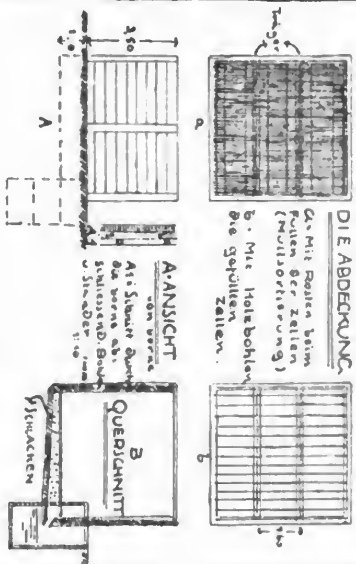 DIE ABDECKUNG
a. Mit Rosten beim
Füllen der Zellen
(Müllsortierung)
b. Mit Holzbohlen
die gefüllten
Zellen.
Träger
a
b
A-ANSICHT
von vorne
A1: Schnitt durch
die vorne ab-
schliessend. Bohlen
u. Ständer
1:10
3,50
1,0
A
B
QUERSCHNITT
SCHLACKEN